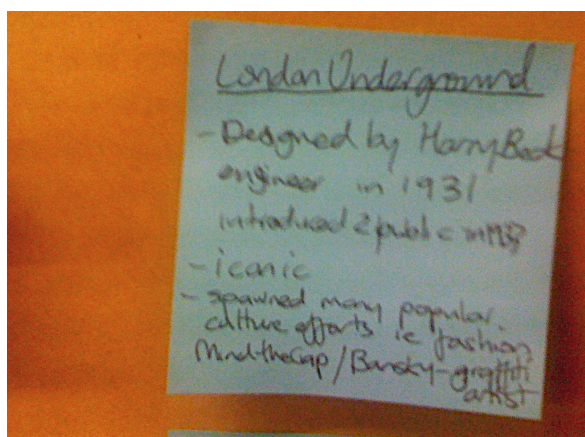 London Underground
- Designed by Harry Beck
engineer in 1931
introduced 2 public in 1933
- iconic
- spawned many popular
culture efforts ie fashion
Mind the Gap / Bansky - graffiti
artist